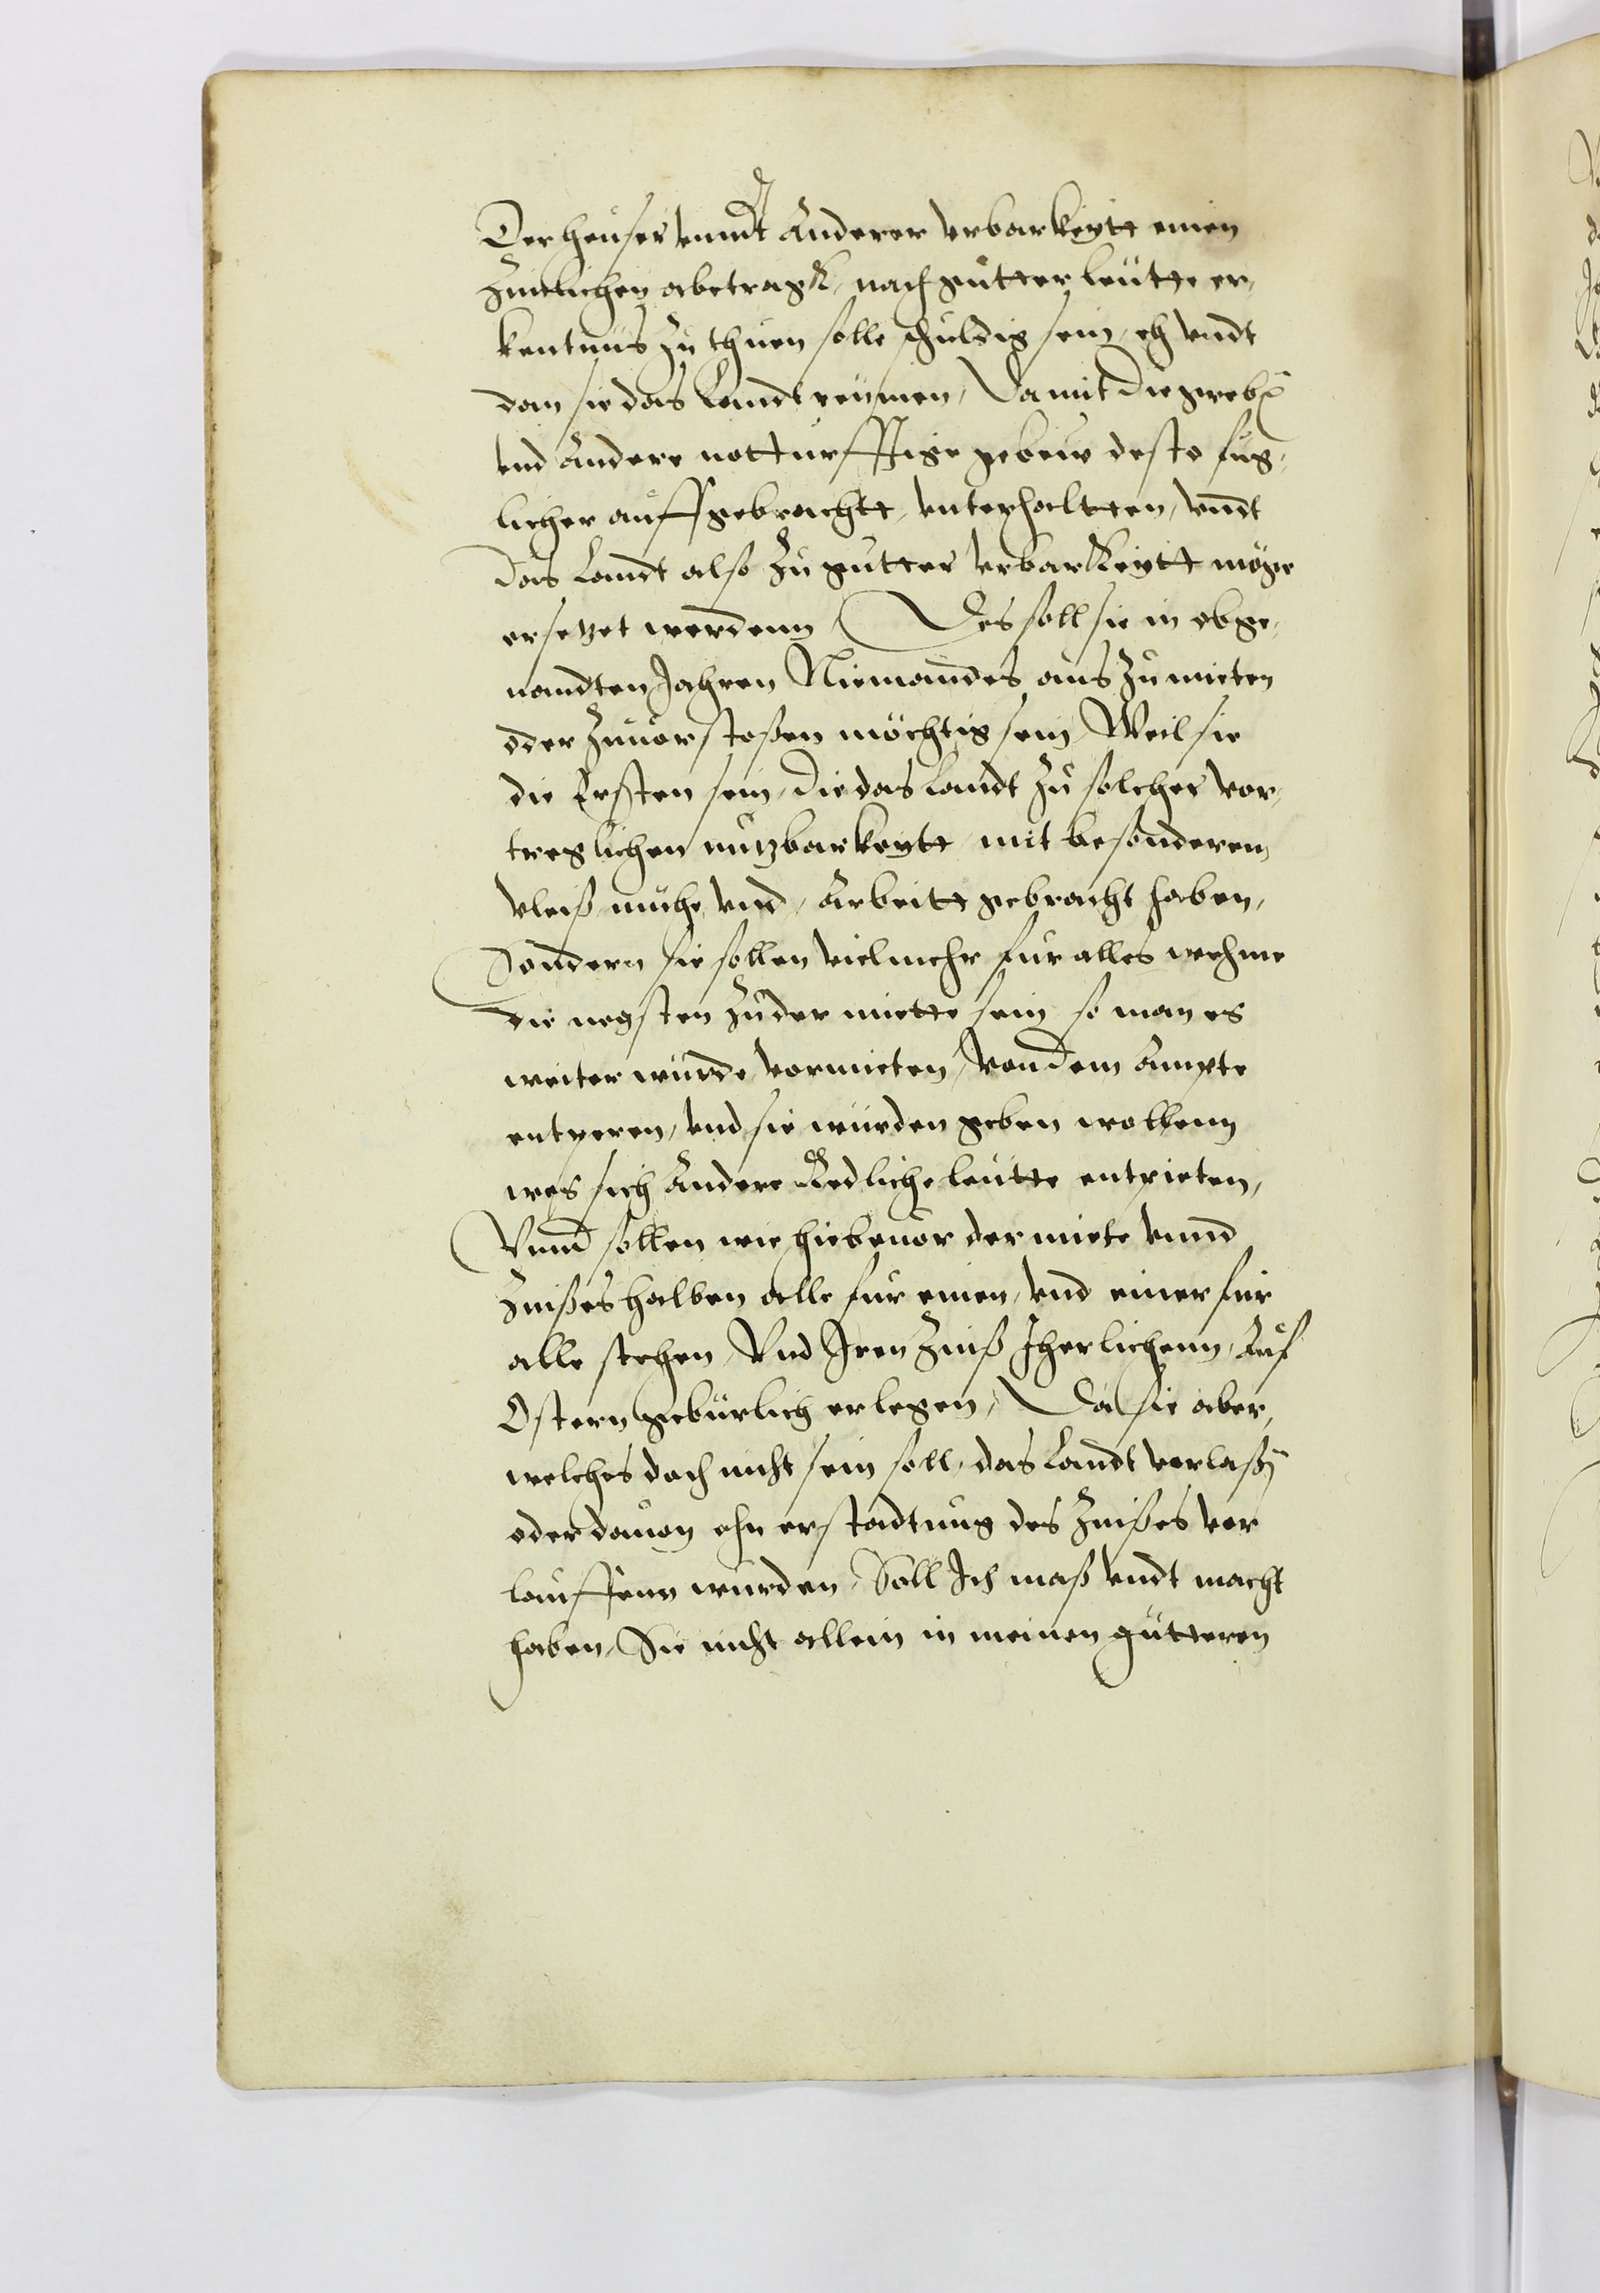 Der heuser vnndt Anderer vrbarkeytt einen
zimlichen abetragk, nach gutter leutte er,
kentnüs zu thuen solle schuldig sein, eh vndt
dan sie das Landt reumen, Damit die greb
vnd Andere notturfftige gebew desto füg,
licher auffgebrachtt, vnterhaltten, vndt
Das Landt also zu gutter vrbarkeytt möge
ersetzet werdenn Des soll sie in obge,
nandten Jahren Niemandes aus zu mieten
oder zuuorstoßen möchtig sein, Weil sie
die Ersten sein, die das Landt zu solcher vor,
treglichen nutzbarkeytt mit besonderem
vleiß mühe vnd, Arbeitt gebracht haben,
Sondern sie sollen viel mehr fur alles wehme
die negsten zu der miette sein so man es
weiter würde vormieten, von dem Ampte
entperen, vnd sie würden geben wollenn
wes sich Andere Redliche leutte entpieten,
Vnnd sollen wie hiebeuor der miete vnnd
Zinßes halben alle fur einen, vnd einer für
alle stehen, Vnd Iren Zinß Jherlichenn, Auf
Ostern gebürlich erlegen, Da sie aber,
welches doch nicht sein soll, das Landt verlaßen
oder dauon ohn erstadtung des Zinßes vor
lauffenn würden, Soll Ich maß vndt macht
haben, Sie nicht allein in meinen gütteren